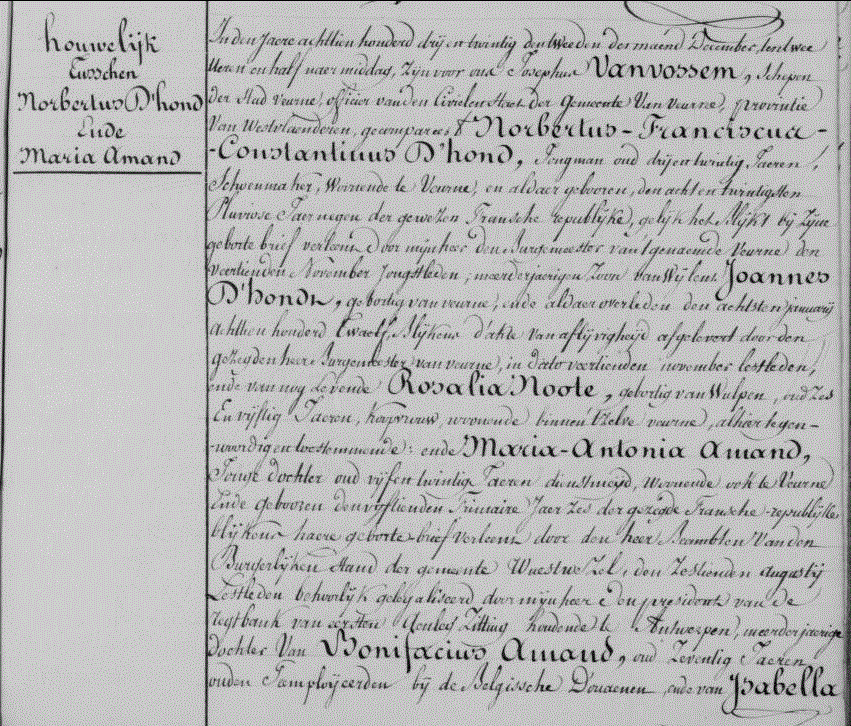 houwelijk
Tusschen
Norbertus D'hond
Ende
Maria Amand
In den Jaere achttien honderd drij en twintig den tweeden der maend December, ten twee
Ueren en half naer middag, Zijn voor ons Josephus Vanvossem, Schepen
der Stad Veurne, officier van den Civielen Staet der Gemeente Van Veurne, provintie
Van Westvlaenderen, gecompareert Norbertus-Franciscus-
-Constantinus D'hond, Jongman oud drij en twintig Jaeren,
Schoenmaker, Woonende te Veurne, en aldaer gebooren, den acht en twintigsten
Pluviose Jaer negen der gewezen Fransche republijke, gelijk het blijkt bij Zijne
geborte brief verleent door mijnheer den Burgemeester van 't genaemde Veurne den
veertienden November Jongstleden, meerderjaerigen Zoon van Wijlent Joannes
D'hondt, gebortig van veurne, ende aldaer overleden den achtsten january
achttien honderd Twaelf, Blijkens d'akte van aflijvigheijd afgelevert door den
gezegden heer Burgemeester van veurne, in dato veertienden november lestleden,
ende van nog Levende Rosalia Noote, gebortig van Wulpen, oud Zes
En vijftig Jaeren, Koopvrouw, woonende binnen 't zelve veurne, alhier tegen-
-woordig en toestemmende: ende Maria-Antonia Amand,
Jonge dochter oud vijf en twintig Jaeren dienstmeijd, Woonende ook te Veurne
Ende gebooren den vijftienden Frimaire Jaer Zes der gezegde Fransche republijke
blijkens haere geborte-brief verleent door den heer Beambten Van den
Burgerlijken Stand der gemeente Wuestwezel, den Zestienden augustij
Lestleden behoorlijk gelegaliseerd door mijnheer den president van de
regtbank van eersten Aenleg Zitting houdende te Antwerpen, meerderjaerige
dochter Van Bonifacius Amand, oud Zeventig Jaeren,
ouden Geemploijeerden bij de Belgissche Douaenen, ende van Ysabella